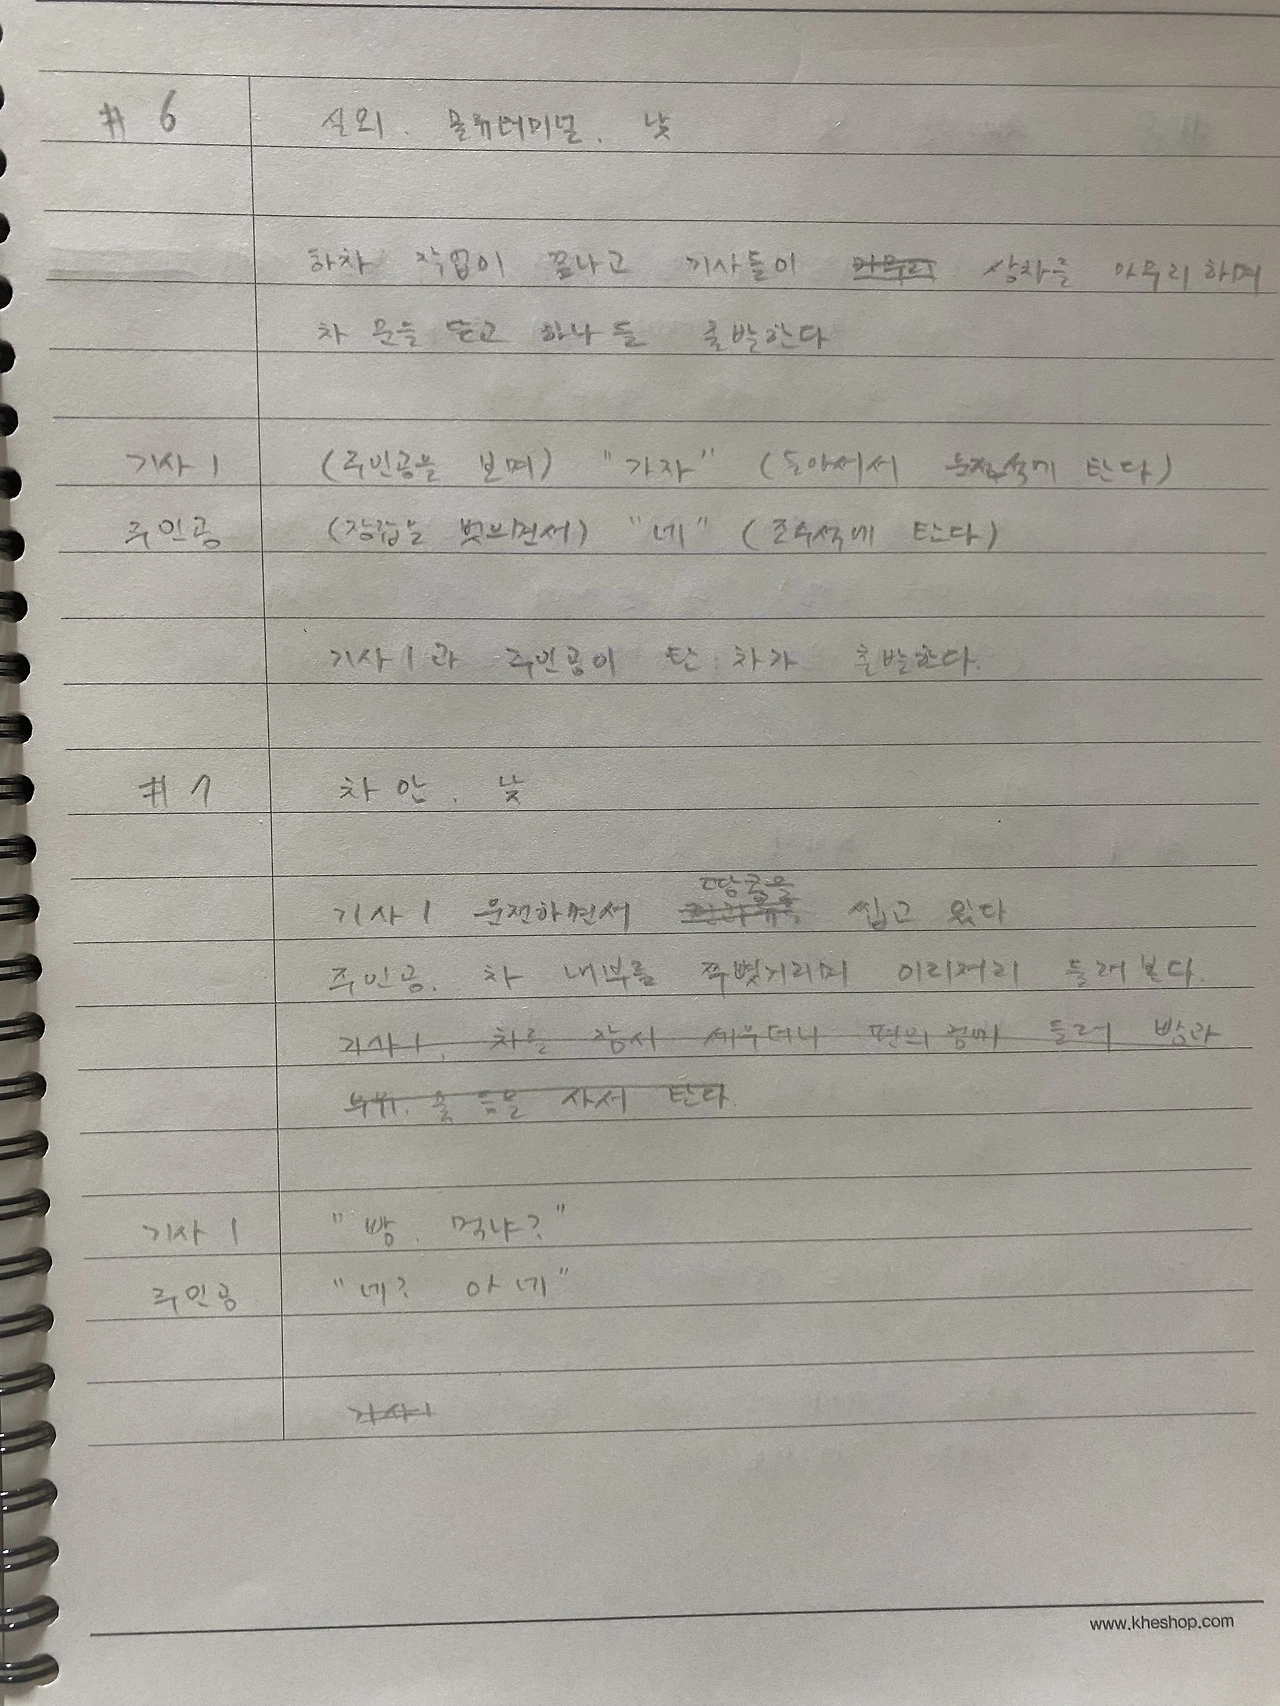 # 6 실외. 물류터미널. 낮
하차 작업이 끝나고 기사들이 마무리 상차를 마무리하며
차 문을 닫고 하나 둘 출발한다
기사 1 (주인공을 보며) "가자" (돌아서서 운전석에 탄다)
주인공 (장갑을 벗으면서) "네" (조수석에 탄다)
기사 1과 주인공이 탄 차가 출발한다.
# 7 차 안. 낮
땅콩을
기사 1 운전하면서 씹고 있다
주인공. 차 내부를 쭈뼛거리며 이리저리 둘러본다.
기사 1. 차를 잠시 세우더니 편의점에 들러 빵과
우유. 술 등을 사서 탄다.
기사 1 "빵. 먹냐?"
주인공 "네? 아 네"
기사 1
www.kheshop.com